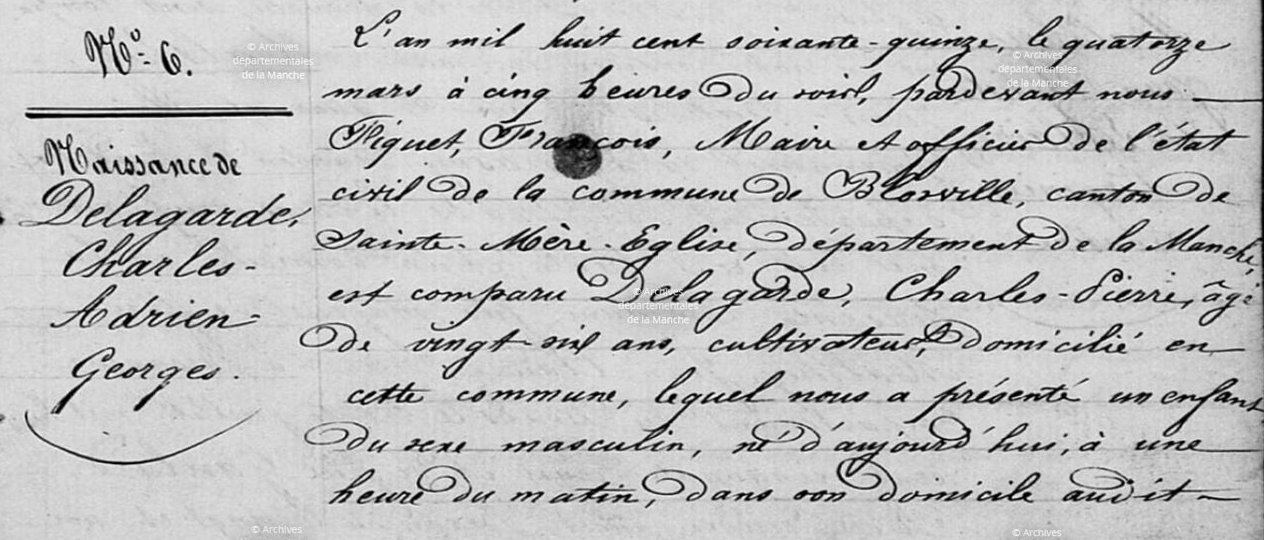 N° 6.
Naissance de
Delagarde,
Charles-
Adrien-
Georges.
L'an mil huit cent soixante-quinze, le quatorze
mars à cinq heures du soir, pardevant nous
Fiquet, François, Maire et officier de l'état
civil de la commune de Blosville, canton de
Sainte-Mère-Eglise, département de la Manche,
est comparu Delagarde, Charles-Pierre, âgé
de vingt-six ans, cultivateur, domicilié en
cette commune, lequel nous a présenté un enfant
du sexe masculin, né d'aujourd'hui, à une
heure du matin, dans son domicile audit
© Archives
départementales
de la Manche
© Archives
départementales
de la Manche
© Archives
départementales
de la Manche
© Archives
© Archives